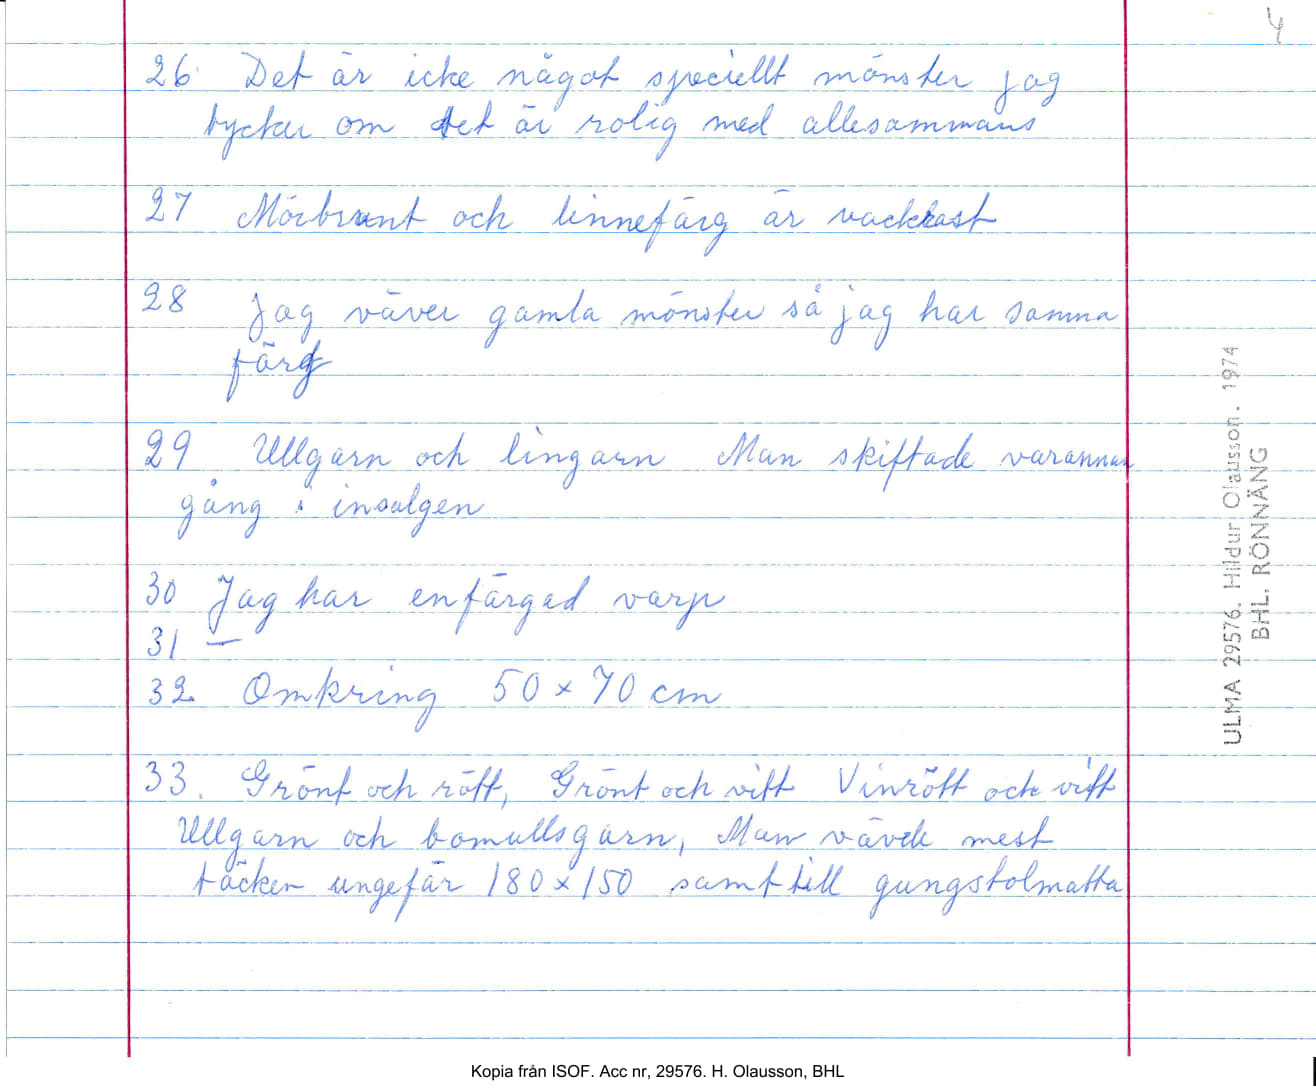 4
26 Det är icke något speciellt mönster jag
tycker om det är rolig med allesammans
27 Mörbrunt och linnefärg är vackrast
28 Jag väver gamla mönster så jag har samma
färg
29 Ullgarn och lingarn Man skiftade varannan
gång i insalgen
30 Jag har enfärgad varp
31 —
32. Omkring 50 x 70 cm
33. Grönt och rött, Grönt och vitt Vinrött och vitt
Ullgarn och bomullsgarn, Man vävde mest
täcken ungefär 180 x 150 samt till gungstolmatta
ULMA 29576. Hildur Olausson. 1974
BHL, RÖNNÄNG
Kopia från ISOF. Acc nr, 29576. H. Olausson, BHL